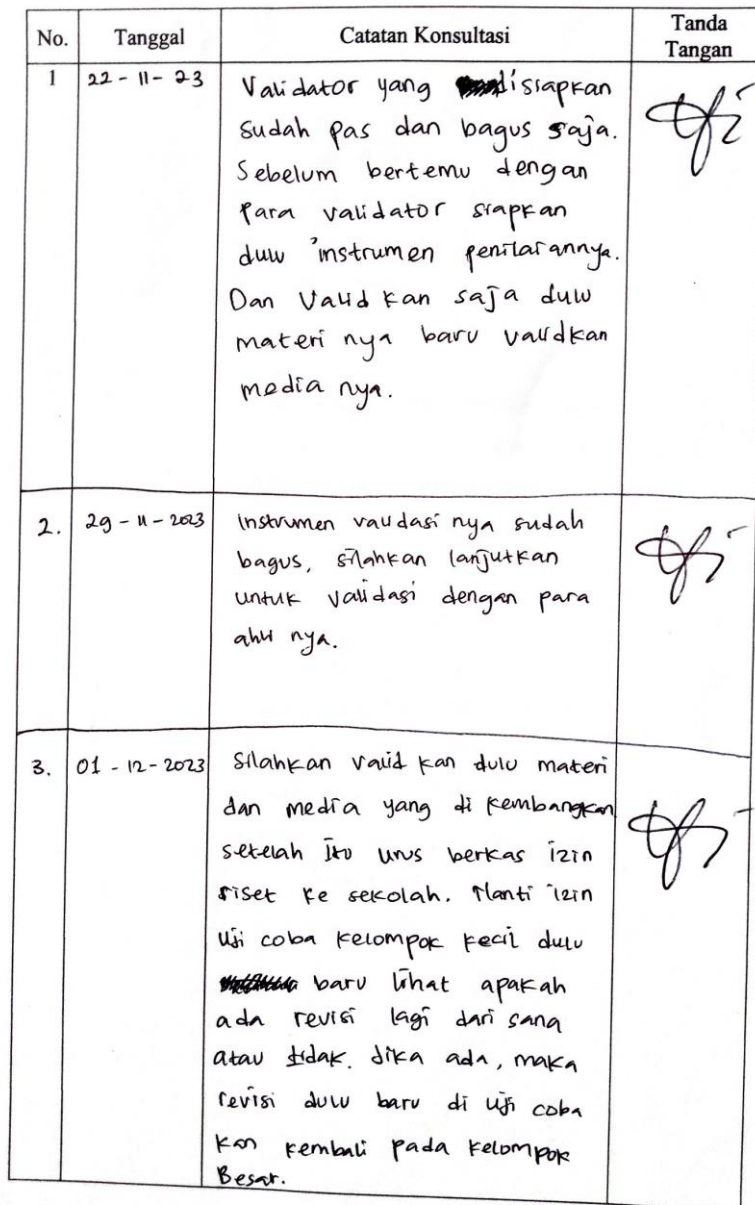 No.
Tanggal
Catatan Konsultasi
Tanda
Tangan
1
22 - 11 - 23
Validator yang disiapkan
sudah pas dan bagus saja.
Sebelum bertemu dengan
para validator siapkan
dulu instrumen penilaiannya.
Dan Valid kan saja dulu
materi nya baru validkan
media nya.
2.
29 - 11 - 2023
Instrumen validasi nya sudah
bagus, silahkan lanjutkan
untuk validasi dengan para
ahli nya.
3.
01 - 12 - 2023
Silahkan valid kan dulu materi
dan media yang di kembangkan
setelah itu urus berkas izin
riset ke sekolah. Nanti izin
Uji coba kelompok kecil dulu
baru lihat apakah
ada revisi lagi dari sana
atau tidak. Jika ada, maka
revisi dulu baru di uji coba
kan kembali pada kelompok
Besar.